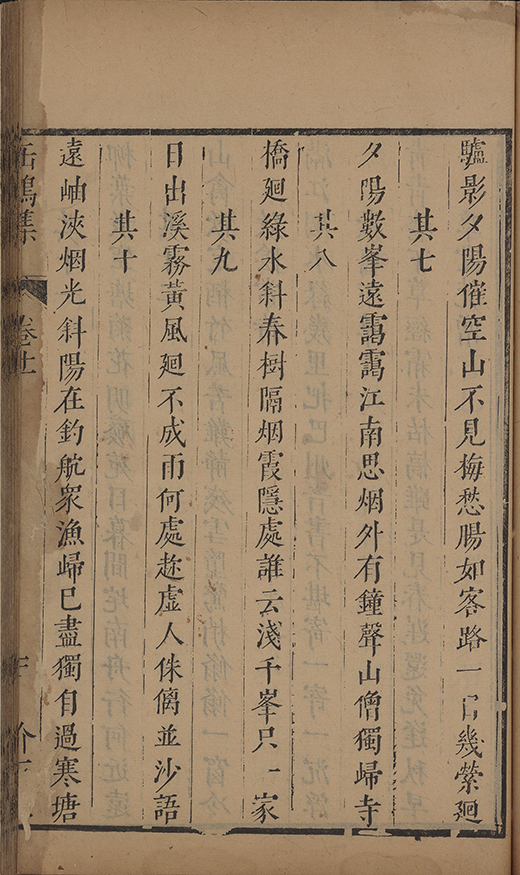 驢影夕陽催空山不見梅愁腸如客路一日幾縈廻
其七
夕陽數峯遠靄靄江南思烟外有鐘聲山僧獨歸寺
其八
橋廻綠水斜春樹隔烟霞隱處誰云淺千峯只一家
其九
日出溪霧黃風廻不成雨何處趂虛人侏𠌯並沙語
其十
遠岫浹烟光斜陽在釣航衆漁歸巳盡獨自過寒塘
鳴集
卷廿